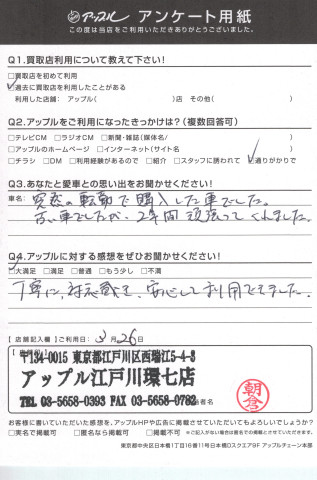 アップル アンケート用紙
この度は当店をご利用いただきありがとうございました。
Q1.買取店利用について教えて下さい!
□買取店を初めて利用
☑過去に買取店を利用したことがある
利用した店舗: アップル( )店 その他( )
Q2.アップルをご利用になったきっかけは?(複数回答可)
□テレビCM □ラジオCM □新聞・雑誌(媒体名/ )
□アップルのホームページ □インターネット(サイト名 )
□チラシ □DM □利用経験があるので □紹介 □スタッフに誘われて ☑通りがかりで
Q3.あなたと愛車との思い出をお聞かせください!
車名: 突然の転勤で購入した車でした。
古い車でしたが、2年間頑張ってくれました。
Q4.アップルに対する感想をぜひお聞かせください!
☑大満足 □満足 □普通 □もう少し □不満
丁寧に、対応戴き、安心して利用できました。
【店舗記入欄】ご利用日: 3月26日
〒134-0015 東京都江戸川区西瑞江5-4-3
アップル江戸川環七店
TEL 03-5658-0393 FAX 03-5658-0782
当者名
朝倉
お客様に書いていただいた感想を、アップルHPや広告に掲載させていただいてもよろしいでしょうか?
□実名で掲載可 □匿名なら掲載可 □掲載不可 ※ご記入がない場合は匿名での掲載とさせていただきます。
東京都中央区日本橋1丁目16番11号日本橋Dスクエア9F アップルチェーン本部